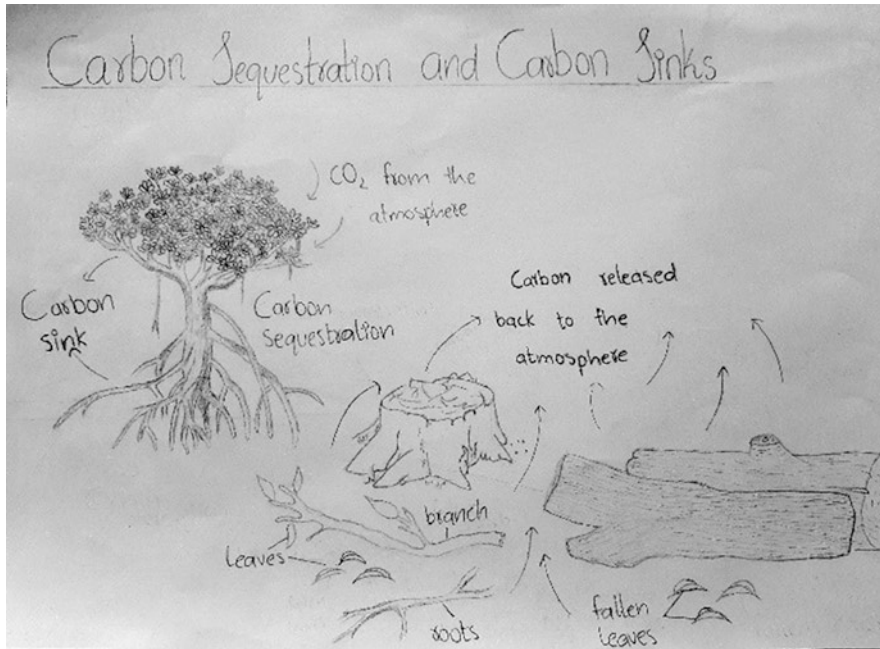 Carbon Sequestration and Carbon Sinks
CO₂ from the
atmosphere
Carbon
sink
Carbon
sequestration
Carbon released
back to the
atmosphere
branch
leaves
roots
fallen
leaves